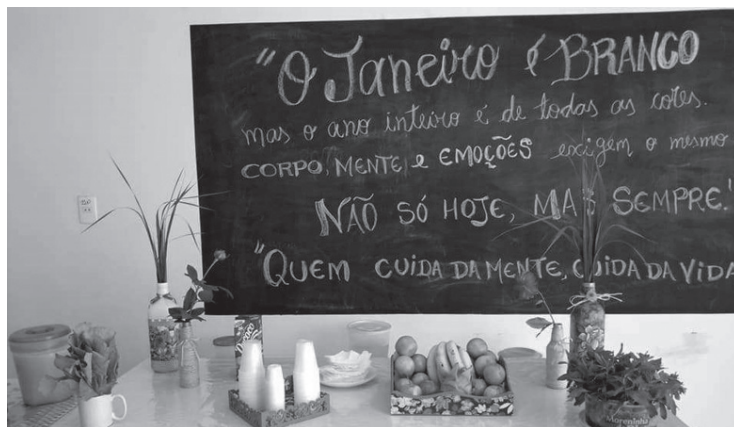 "O JANEIRO é BRANCO
mas o ano inteiro é de todas as cores.
CORPO, MENTE e EMOÇÕES exigem o mesmo
NÃO SÓ HOJE, MAS SEMPRE."
"QUEM CUIDA DA MENTE, CUIDA DA VIDA
Moreninha